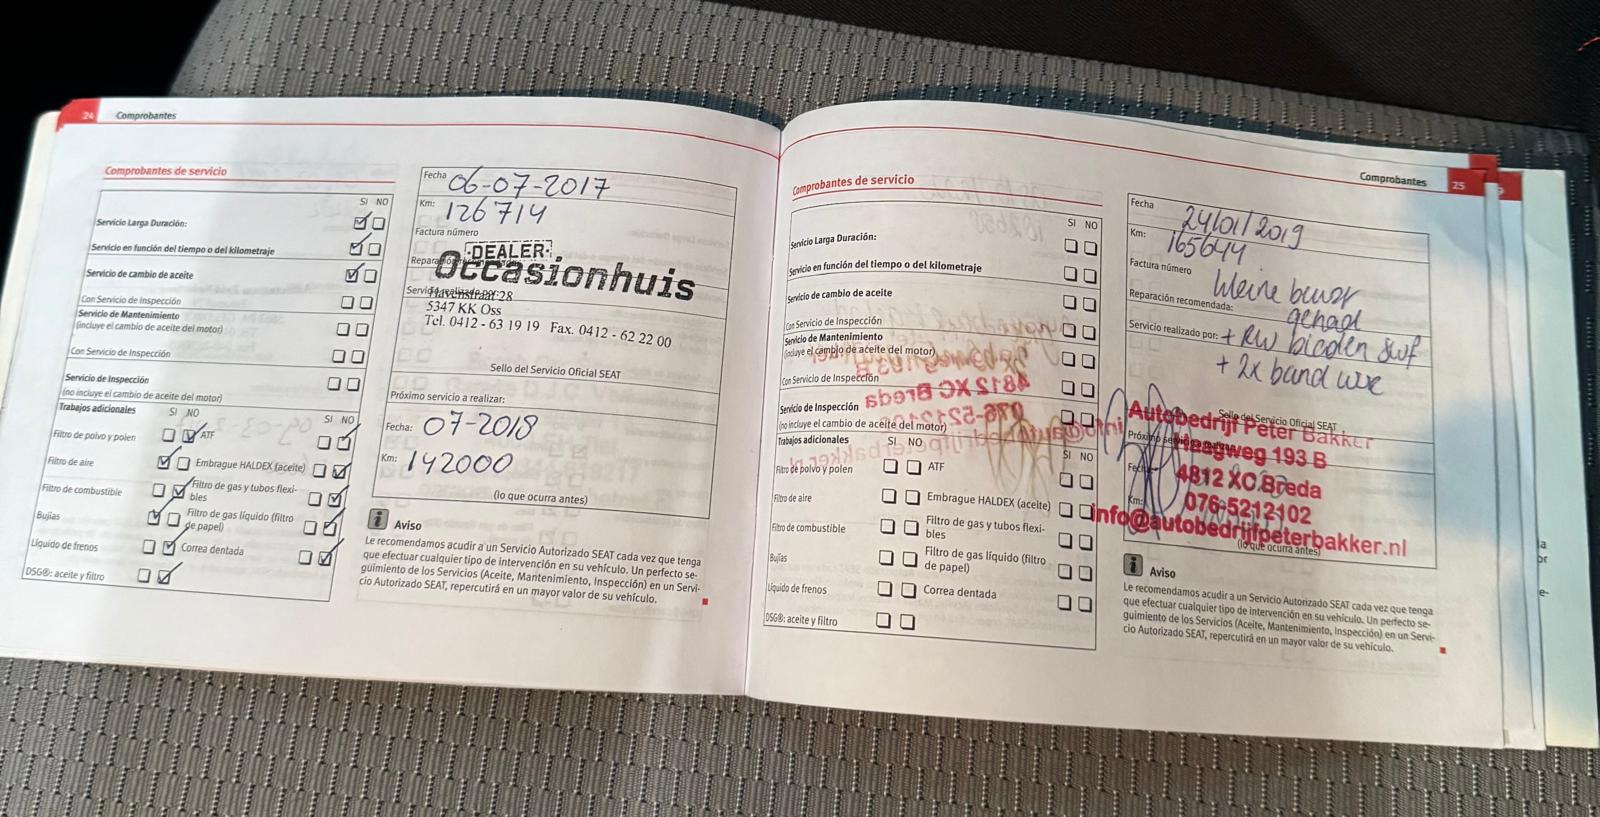 24 Comprobantes
Comprobantes de servicio
SI NO
Servicio Larga Duración:
Servicio en función del tiempo o del kilometraje
Servicio de cambio de aceite
Con Servicio de Inspección
Servicio de Mantenimiento
(incluye el cambio de aceite del motor)
Con Servicio de Inspección
Servicio de Inspección
(no incluye el cambio de aceite del motor)
Trabajos adicionales SI NO SI NO
Filtro de polvo y polen ATF
Filtro de aire Embrague HALDEX (aceite)
Filtro de combustible Filtro de gas y tubos flexi-
bles
Bujías Filtro de gas líquido (filtro
de papel)
Líquido de frenos Correa dentada
DSG®: aceite y filtro
Fecha 06-07-2017
Km: 126714
Factura número
DEALER:
Occasionhuis
Havenstraat 28
5347 KK Oss
Tel. 0412 - 63 19 19 Fax. 0412 - 62 22 00
Sello del Servicio Oficial SEAT
Próximo servicio a realizar:
Fecha: 07-2018
Km: 142000
(lo que ocurra antes)
Aviso
Le recomendamos acudir a un Servicio Autorizado SEAT cada vez que tenga
que efectuar cualquier tipo de intervención en su vehículo. Un perfecto se-
guimiento de los Servicios (Aceite, Mantenimiento, Inspección) en un Servi-
cio Autorizado SEAT, repercutirá en un mayor valor de su vehículo.
Comprobantes 25
Comprobantes de servicio
SI NO
Servicio Larga Duración:
Servicio en función del tiempo o del kilometraje
Servicio de cambio de aceite
Con Servicio de Inspección
Servicio de Mantenimiento
(incluye el cambio de aceite del motor)
Con Servicio de Inspección
Servicio de Inspección
(no incluye el cambio de aceite del motor)
Trabajos adicionales SI NO SI NO
Filtro de polvo y polen ATF
Filtro de aire Embrague HALDEX (aceite)
Filtro de combustible Filtro de gas y tubos flexi-
bles
Bujías Filtro de gas líquido (filtro
de papel)
Líquido de frenos Correa dentada
DSG®: aceite y filtro
Fecha 24/01/2019
Km: 165644
Factura número kleine beurt
Reparación recomendada: gehad
Servicio realizado por: + RW
+ 2x band
Sello del Servicio Oficial SEAT
Autobedrijf Peter Bakker
Haagweg 193 B
4812 XC Breda
076-5212102
info@autobedrijfpeterbakker.nl
(lo que ocurra antes)
Aviso
Le recomendamos acudir a un Servicio Autorizado SEAT cada vez que tenga
que efectuar cualquier tipo de intervención en su vehículo. Un perfecto se-
guimiento de los Servicios (Aceite, Mantenimiento, Inspección) en un Servi-
cio Autorizado SEAT, repercutirá en un mayor valor de su vehículo.